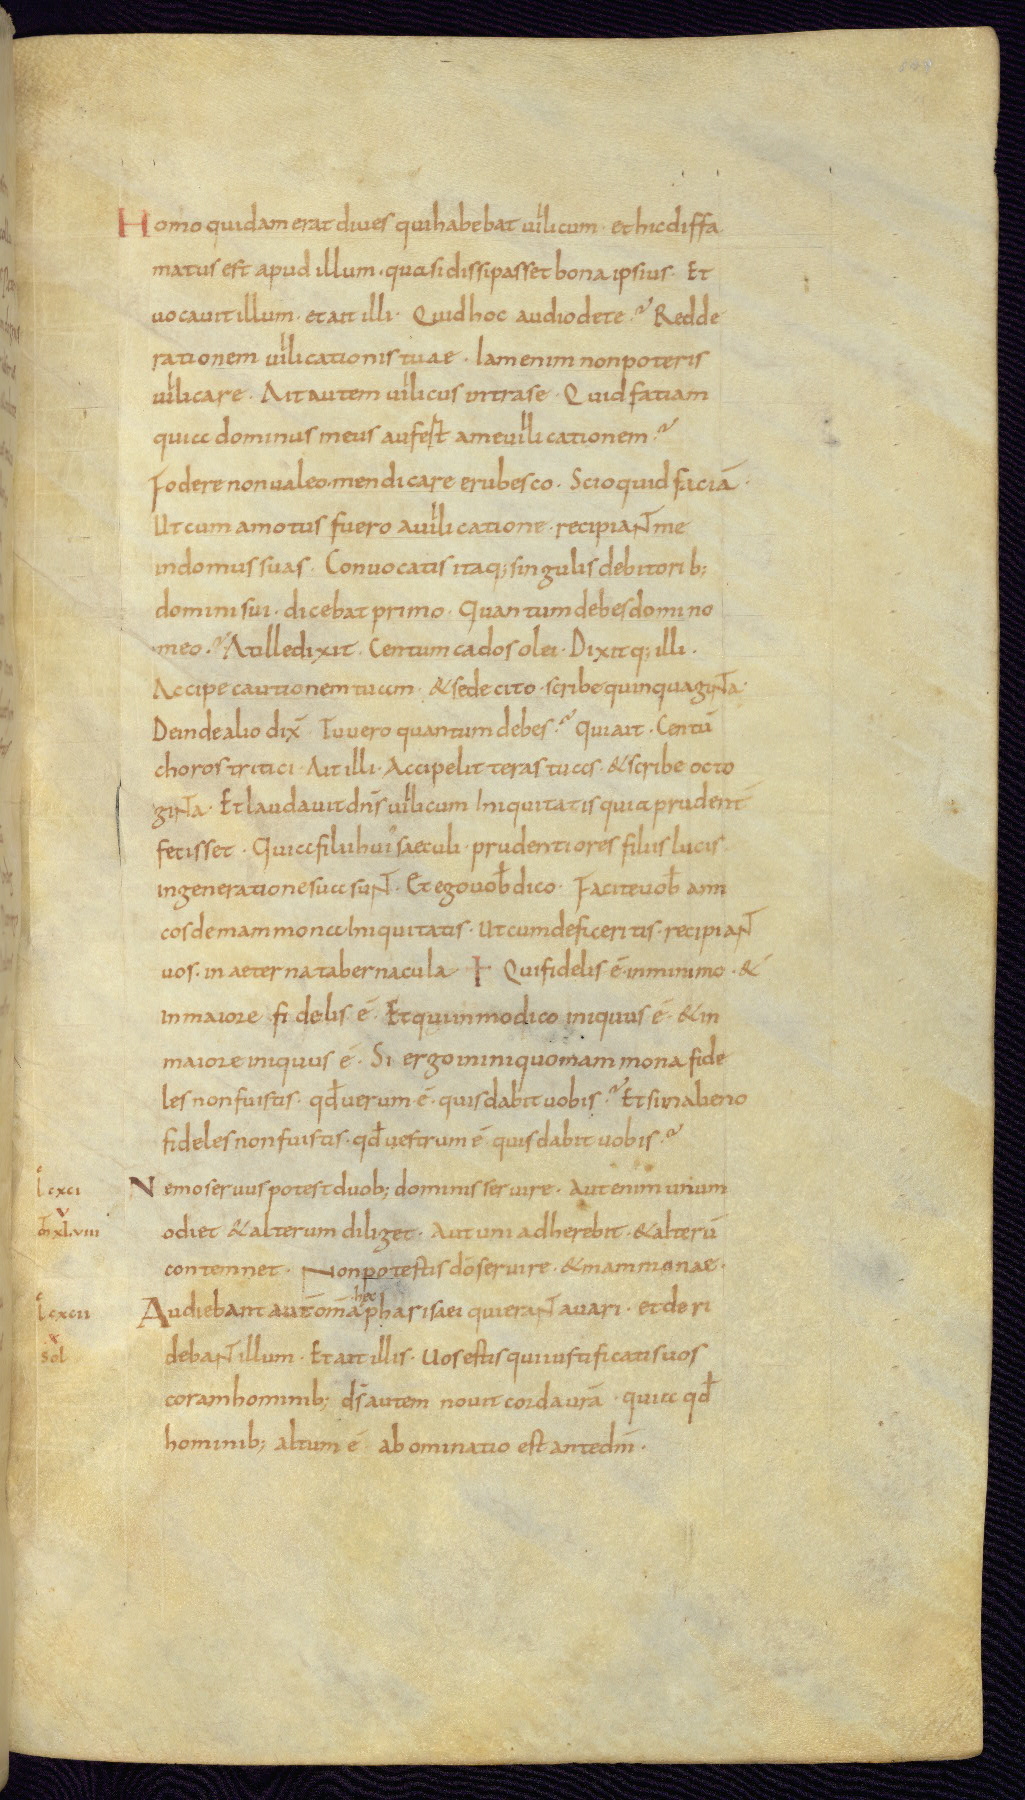 Homo quidam erat dives qui habebat vilicum · et hic diffa
matus est apud illum · quasi dissipasset bona ipsius · Et
vocavit illum · et ait illi · Quid hoc audio de te ? Redde
rationem vilicationis tuae · Iam enim non poteris
vilicare · Ait autem vilicus intra se · Quid fatiam
quia dominus meus aufert a me vilicationem ?
Fodere non valeo · mendicare erubesco · Scio quid faciā ·
Ut cum amotus fuero a vilicatione · recipiant me
in domus suas · Convocatis itaq; singulis debitorib;
domini sui · dicebat primo · Quantum debes domino
meo · ? At ille dixit · Centum cados olei · Dixitq; illi ·
Accipe cautionem tuam · & sede cito · scribe quinquaginta ·
Deinde alio dix̄ · Tu vero quantum debes ? Qui ait · Centū
choros tritici · Ait illi · Accipe litteras tuas · & scribe octo
ginta · Et laudavit dn̄s vilicum Iniquitatis quia prudent̄
fecisset · Quia filii hui' saeculi · prudentiores filiis lucis ·
in generatione sua sunt · Et ego vob̄ dico · Facite vob̄ ami
cos de mammona Iniquitatis · Ut cum defeceritis · recipiant
vos · in aeterna tabernacula · + Qui fidelis ē in minimo · &
in maiore fidelis ē · Et qui in modico iniquus ē · & in
maiore iniquus ē · Si ergo in iniquo mammona fide
les non fuistis · qd̄ verum ē · quis dabit vobis · ? Et si in alieno
fideles non fuistis · qd̄ vestrum ē quis dabit vobis · ?
l cxci Nemo servus potest duob; dominis servire · Aut enim unum
m̄ xl.viii odiet & alterum diliget · Aut uni adherebit · & alterū
contemnet · Non potestis dō servire · & mammonae ·
l cxcii Audiebant autē omā hec pharisaei qui erant avari · et deri
x sol debant illum · Et ait illis · Vos estis qui iustificatis vos
coram hominib; dš autem novit corda vrā · quia qd̄
hominib; altum ē abominatio est ante dm̄ ·